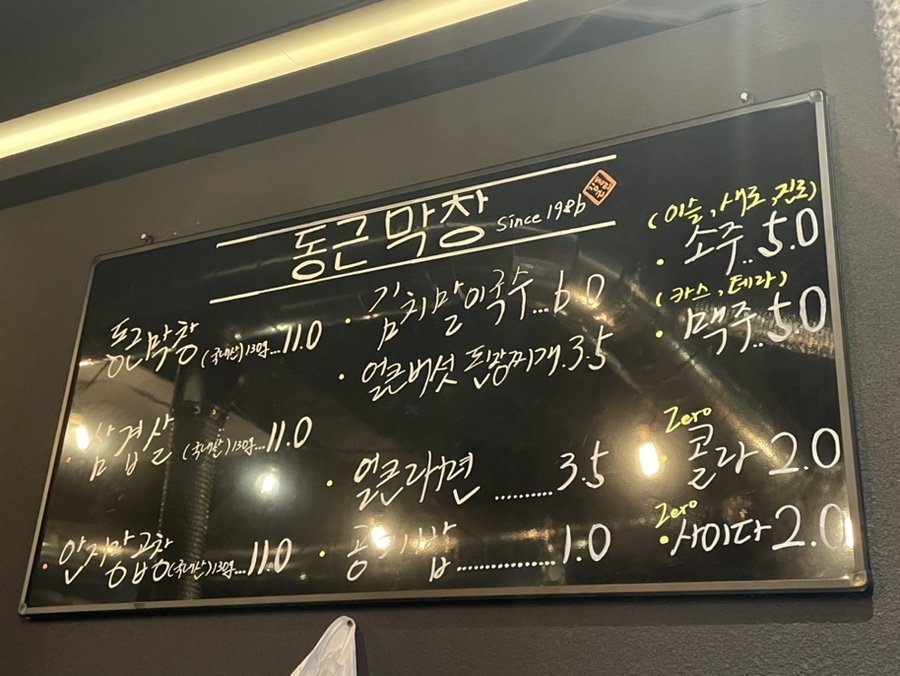 동근막창 since 1986
동근막창 (국내산) 130g...11.0
삼겹살 (국내산) 130g...11.0
안지랑곱창 (국내산) 130g...11.0
· 김치말이국수...6.0
· 얼큰버섯 된장찌개.3.5
· 얼큰라면 ..........3.5
· 공기밥................1.0
(이슬, 새로, 진로)
· 소주..5.0
(카스, 테라)
· 맥주..5.0
Zero
· 콜라 2.0
Zero
· 사이다 2.0